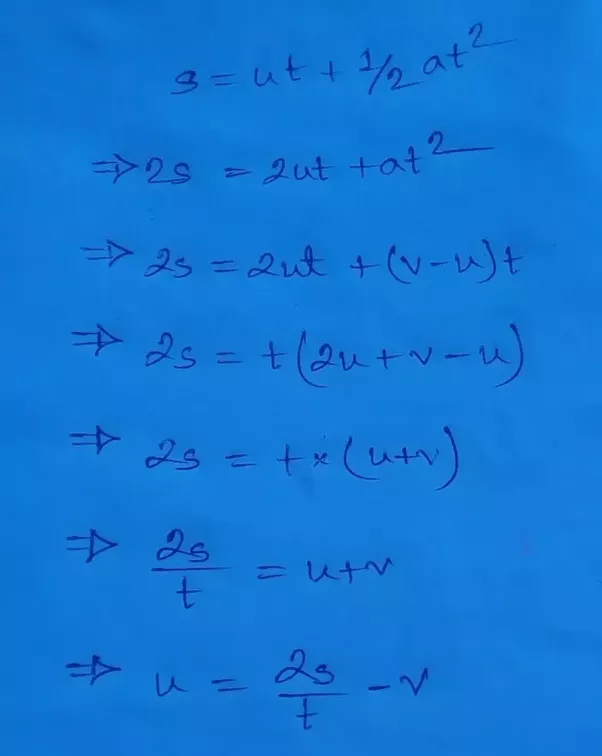 s = ut + 1/2 at²
⇒ 2s = 2ut + at²
⇒ 2s = 2ut + (v-u)t
⇒ 2s = t(2u + v - u)
⇒ 2s = t × (u+v)
⇒ 2s/t = u+v
⇒ u = 2s/t - v